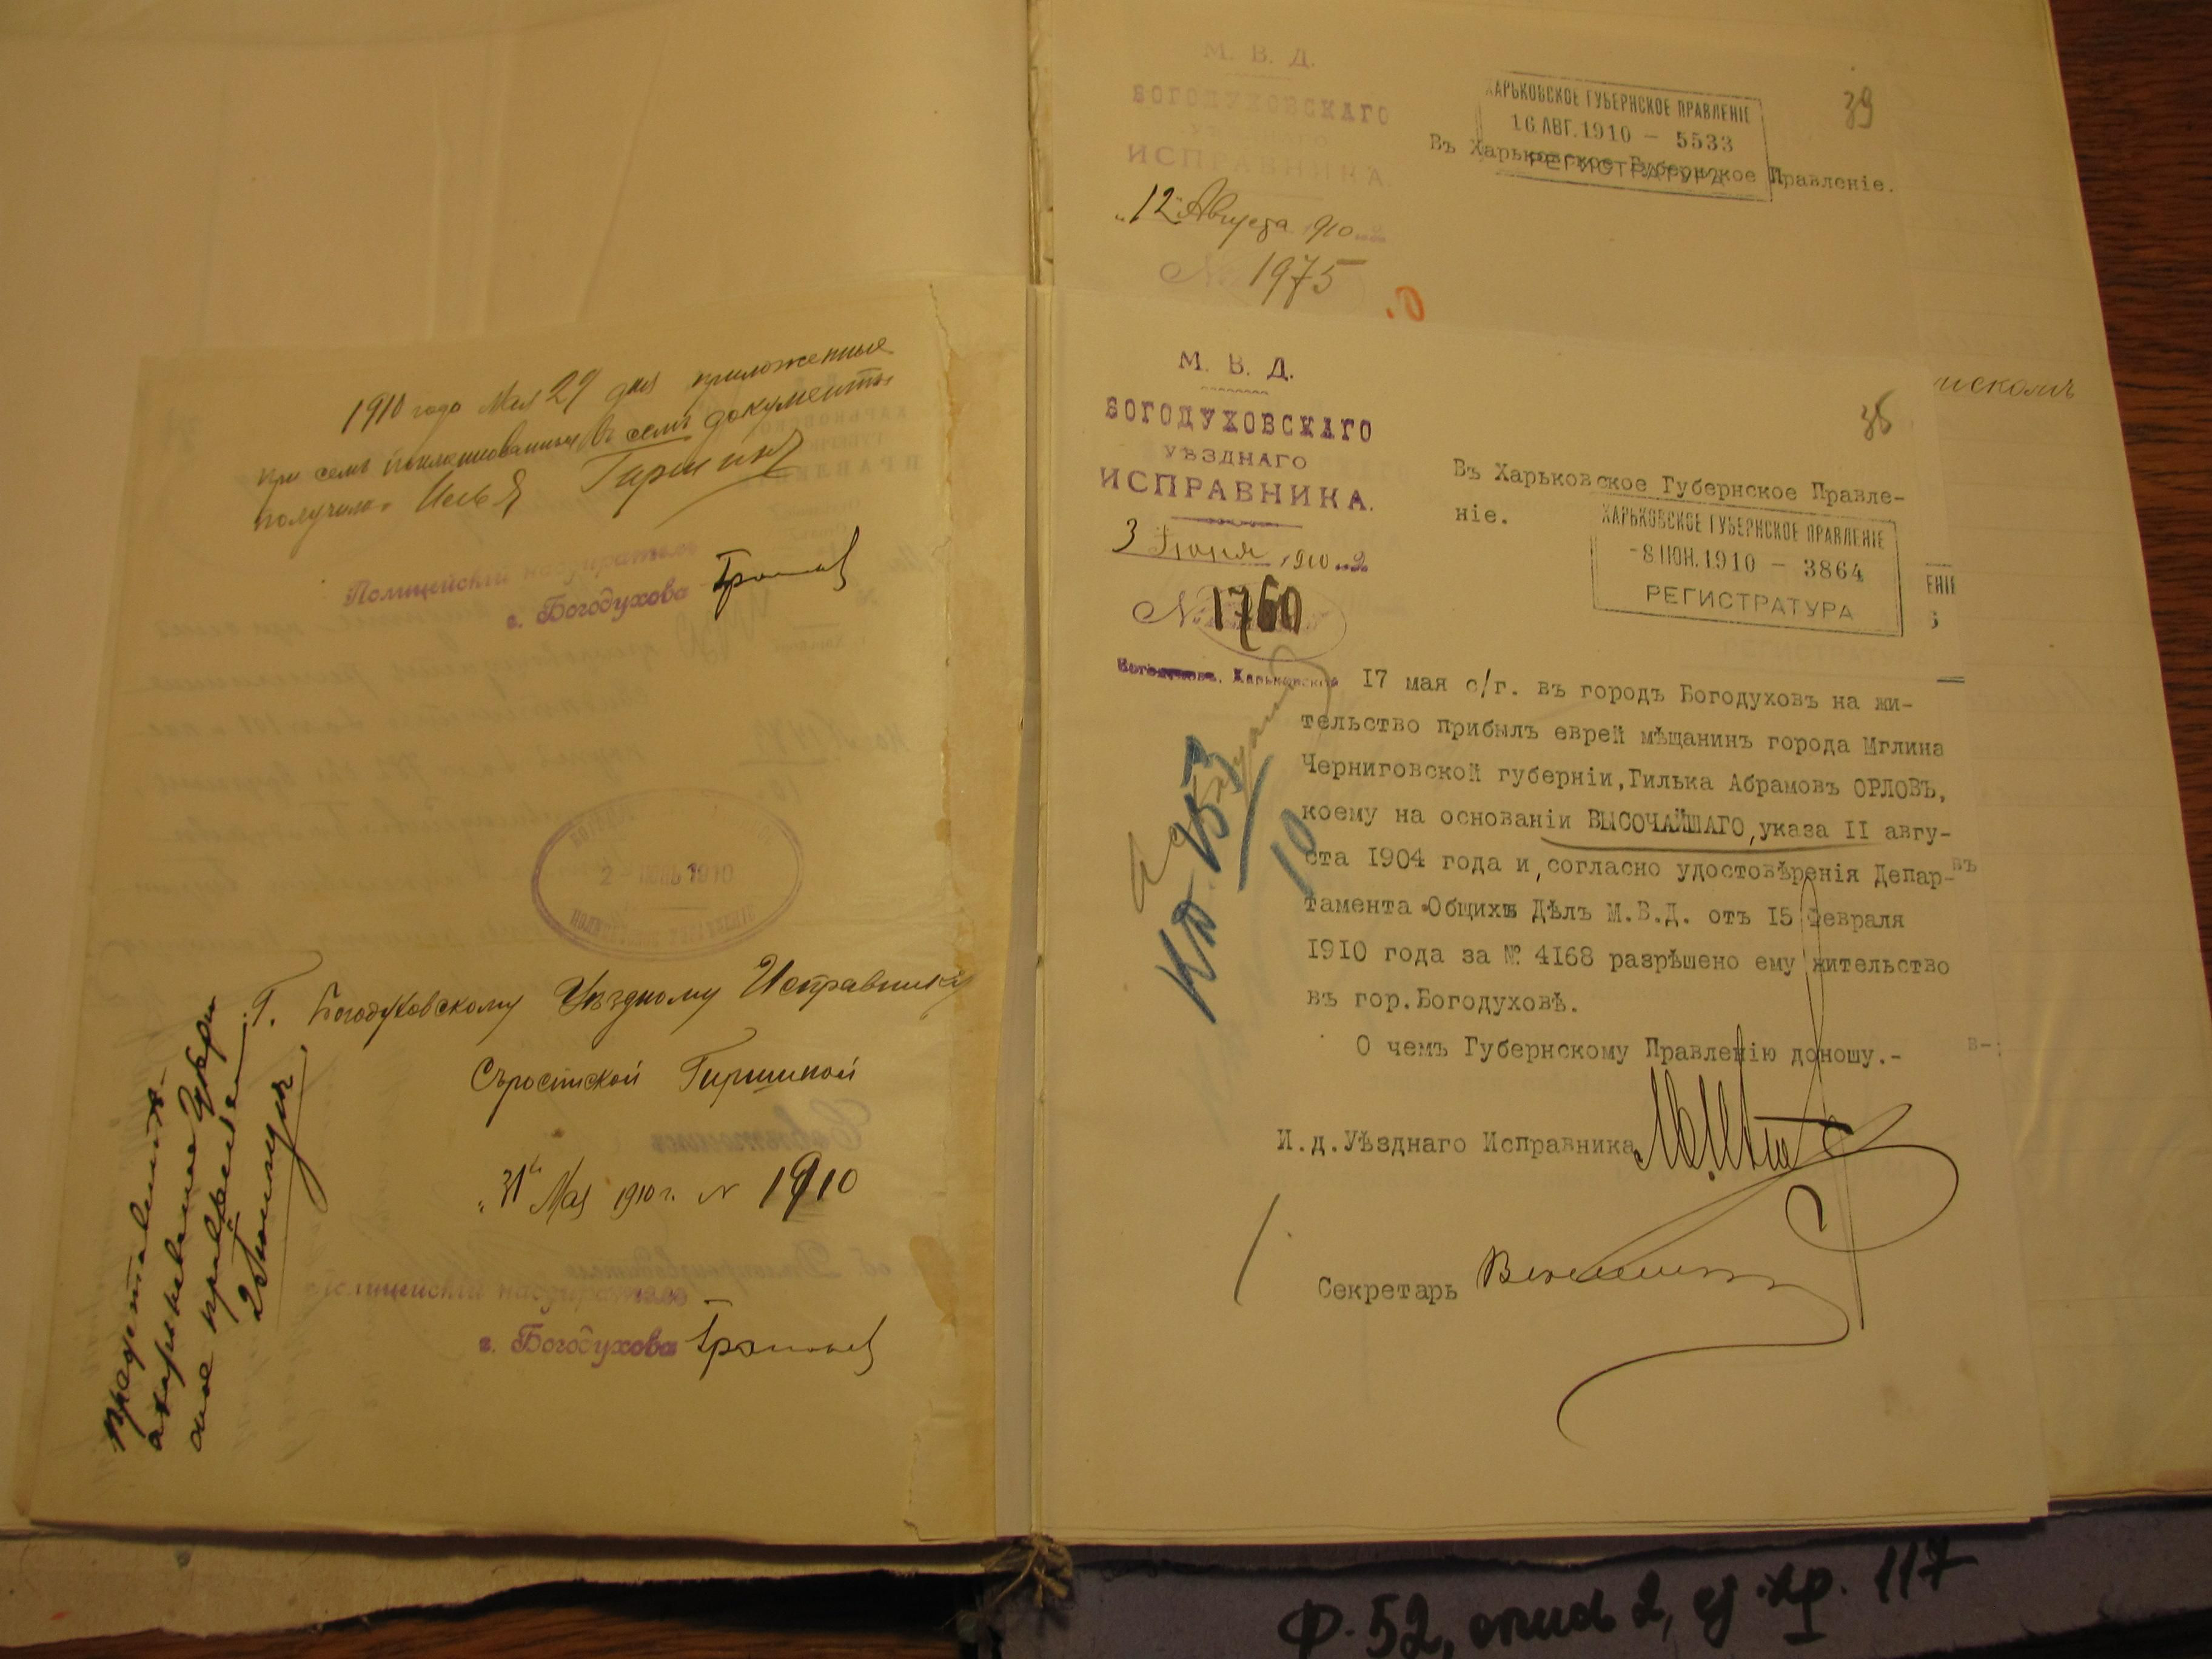 1910 года Мая 29 дня приложенные
при семъ поименованные въ семъ документы
получилъ Гиршинъ
Полицейскій надзиратель
г. Богодухова
2 ІЮНЬ 1910
Г. Богодуховскому Уѣздному Исправнику
Гиршиной
"31" Мая 1910 г. N 1910
Полицейскій надзиратель
г. Богодухова
Представить
въ Харьковское Губерн
ское правленіе
2 Іюня
М. В. Д.
БОГОДУХОВСКАГО
УѢЗДНАГО
ИСПРАВНИКА.
"12" Августа 1910 г.
№ 1975
ХАРЬКОВСКОЕ ГУБЕРНСКОЕ ПРАВЛЕНІЕ
16 АВГ. 1910 — 5533
РЕГИСТРАТУРА
39
Въ Харьковское Губернское Правленіе.
М. В. Д.
БОГОДУХОВСКАГО
УѢЗДНАГО
ИСПРАВНИКА.
3 Іюня 1910 г.
№ 1760
Харьковской
36
Въ Харьковское Губернское Правле-
ніе.
ХАРЬКОВСКОЕ ГУБЕРНСКОЕ ПРАВЛЕНІЕ
-8 ІЮН. 1910 — 3864
РЕГИСТРАТУРА
ЕНІЕ
искомъ
17 мая с/г. въ городъ Богодуховъ на жи-
тельство прибылъ еврей мѣщанинъ города Мглина
Черниговской губерніи, Гилька Абрамовъ ОРЛОВЪ,
коему на основаніи ВЫСОЧАЙШАГО, указа II авгу-
ста 1904 года и, согласно удостовѣренія Депар-
тамента Общихъ Дѣлъ М.В.Д. отъ 15 Февраля
1910 года за № 4168 разрѣшено ему жительство
въ гор. Богодуховѣ.
О чемъ Губернскому Правленію доношу.-
И.д. Уѣзднаго Исправника
Секретарь
Ф. 52, опись 2, ед. хр. 117